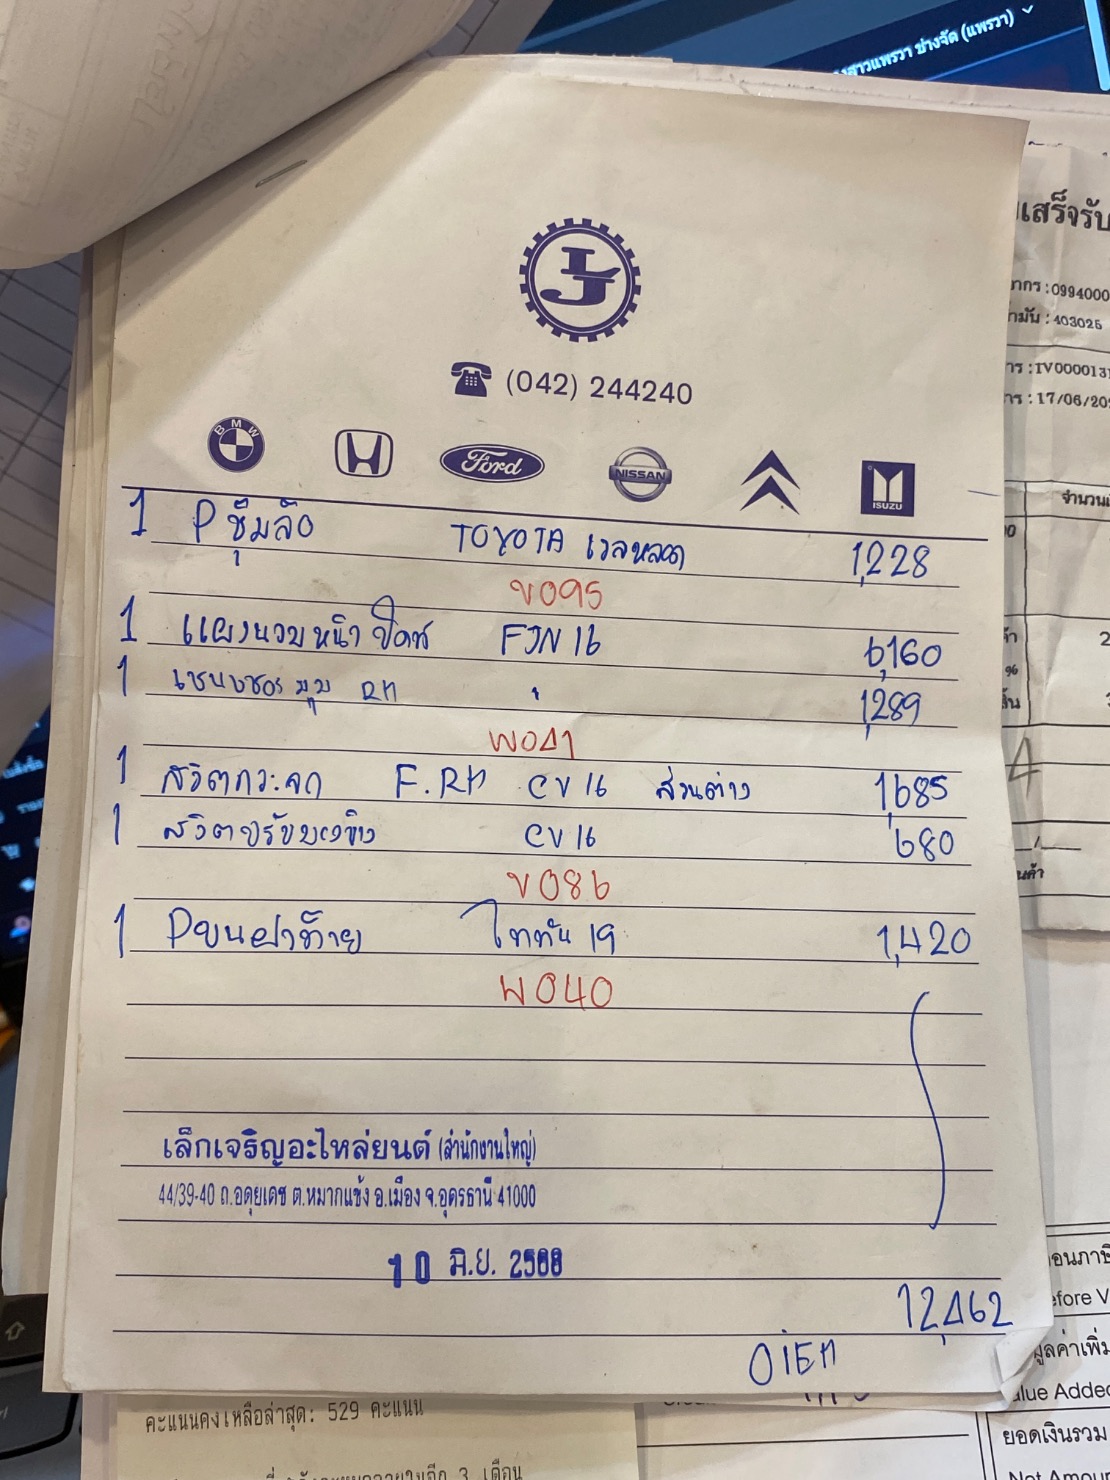 งสาวแพรวา ช่างจัด (แพรวา)
เสร็จรับ
ากร : 0994000
ามัน : 403025
าร : IV0000131
าร : 17/06/20
จำนวนเ
LJ
(042) 244240
BMW
Ford
NISSAN
ISUZU
1 P ซุ้มล้อ TOYOTA 1,228
V095
1 FJN 16 6,160
1 มุม RH " 1,289
W041
1 F.RH CV 16 ส่วนต่าง 1,685
1 CV 16 680
V086
1 ไททัน 19 1,420
W040
เล็กเจริญอะไหล่ยนต์ (สำนักงานใหญ่)
44/39-40 ถ.อดุยเดช ต.หมากแข้ง อ.เมือง จ.อุดรธานี 41000
10 มิ.ย. 2568
12,462
นค้า
อนภาษี
efore V
มูลค่าเพิ่
alue Added
ยอดเงินรวม
Net Amoun
คะแนนคงเหลือล่าสุด: 529 คะแนน
3 เดือน